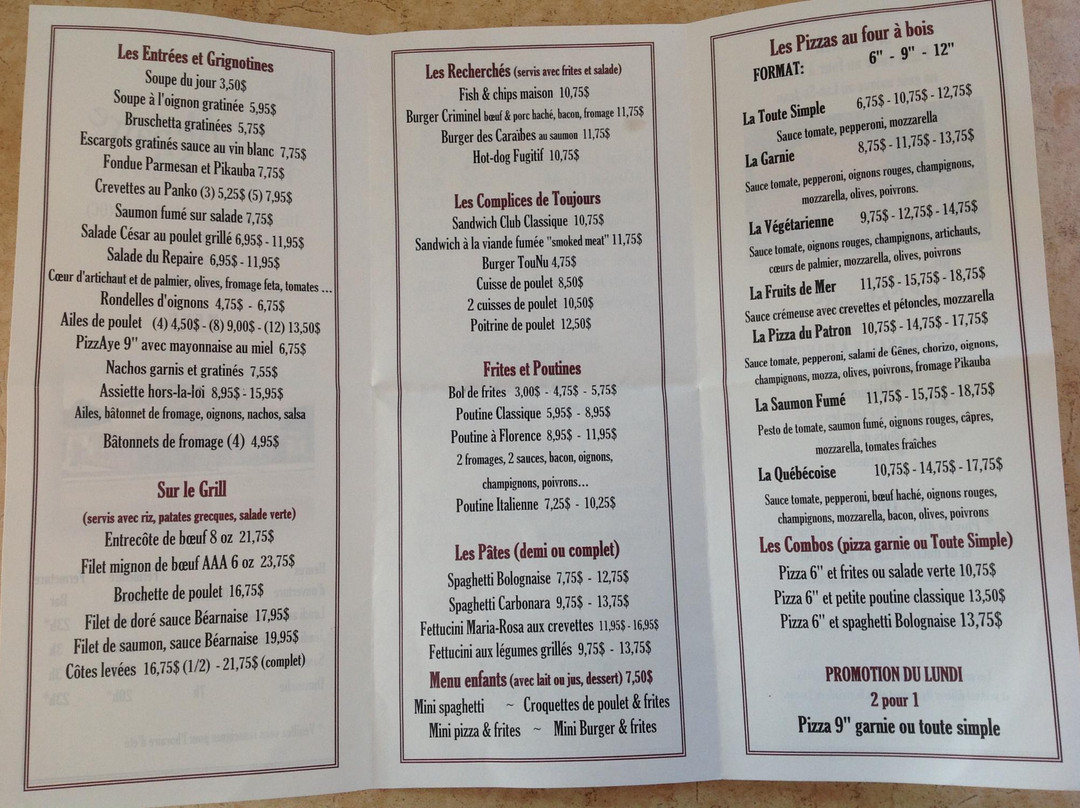 Les Entrées et Grignotines
Soupe du jour 3,50$
Soupe à l'oignon gratinée 5,95$
Bruschetta gratinées 5,75$
Escargots gratinés sauce au vin blanc 7,75$
Fondue Parmesan et Pikauba 7,75$
Crevettes au Panko (3) 5,25$ (5) 7,95$
Saumon fumé sur salade 7,75$
Salade César au poulet grillé 6,95$ - 11,95$
Salade du Repaire 6,95$ - 11,95$
Cœur d'artichaut et de palmier, olives, fromage feta, tomates ...
Rondelles d'oignons 4,75$ - 6,75$
Ailes de poulet (4) 4,50$ - (8) 9,00$ - (12) 13,50$
PizzAye 9" avec mayonnaise au miel 6,75$
Nachos garnis et gratinés 7,55$
Assiette hors-la-loi 8,95$ - 15,95$
Ailes, bâtonnet de fromage, oignons, nachos, salsa
Bâtonnets de fromage (4) 4,95$
Sur le Grill
(servis avec riz, patates grecques, salade verte)
Entrecôte de bœuf 8 oz 21,75$
Filet mignon de bœuf AAA 6 oz 23,75$
Brochette de poulet 16,75$
Filet de doré sauce Béarnaise 17,95$
Filet de saumon, sauce Béarnaise 19,95$
Côtes levées 16,75$ (1/2) - 21,75$ (complet)
Les Recherchés (servis avec frites et salade)
Fish & chips maison 10,75$
Burger Criminel bœuf & porc haché, bacon, fromage 11,75$
Burger des Caraïbes au saumon 11,75$
Hot-dog Fugitif 10,75$
Les Complices de Toujours
Sandwich Club Classique 10,75$
Sandwich à la viande fumée "smoked meat" 11,75$
Burger TouNu 4,75$
Cuisse de poulet 8,50$
2 cuisses de poulet 10,50$
Poitrine de poulet 12,50$
Frites et Poutines
Bol de frites 3,00$ - 4,75$ - 5,75$
Poutine Classique 5,95$ - 8,95$
Poutine à Florence 8,95$ - 11,95$
2 fromages, 2 sauces, bacon, oignons,
champignons, poivrons...
Poutine Italienne 7,25$ - 10,25$
Les Pâtes (demi ou complet)
Spaghetti Bolognaise 7,75$ - 12,75$
Spaghetti Carbonara 9,75$ - 13,75$
Fettucini Maria-Rosa aux crevettes 11,95$ - 16,95$
Fettucini aux légumes grillés 9,75$ - 13,75$
Menu enfants (avec lait ou jus, dessert) 7,50$
Mini spaghetti ~ Croquettes de poulet & frites
Mini pizza & frites ~ Mini Burger & frites
Les Pizzas au four à bois
FORMAT: 6" - 9" - 12"
La Toute Simple 6,75$ - 10,75$ - 12,75$
Sauce tomate, pepperoni, mozzarella
La Garnie 8,75$ - 11,75$ - 13,75$
Sauce tomate, pepperoni, oignons rouges, champignons,
mozzarella, olives, poivrons.
La Végétarienne 9,75$ - 12,75$ - 14,75$
Sauce tomate, oignons rouges, champignons, artichauts,
cœurs de palmier, mozzarella, olives, poivrons
La Fruits de Mer 11,75$ - 15,75$ - 18,75$
Sauce crémeuse avec crevettes et pétoncles, mozzarella
La Pizza du Patron 10,75$ - 14,75$ - 17,75$
Sauce tomate, pepperoni, salami de Gênes, chorizo, oignons,
champignons, mozza, olives, poivrons, fromage Pikauba
La Saumon Fumé 11,75$ - 15,75$ - 18,75$
Pesto de tomate, saumon fumé, oignons rouges, câpres,
mozzarella, tomates fraîches
La Québécoise 10,75$ - 14,75$ - 17,75$
Sauce tomate, pepperoni, bœuf haché, oignons rouges,
champignons, mozzarella, bacon, olives, poivrons
Les Combos (pizza garnie ou Toute Simple)
Pizza 6" et frites ou salade verte 10,75$
Pizza 6" et petite poutine classique 13,50$
Pizza 6" et spaghetti Bolognaise 13,75$
PROMOTION DU LUNDI
2 pour 1
Pizza 9" garnie ou toute simple